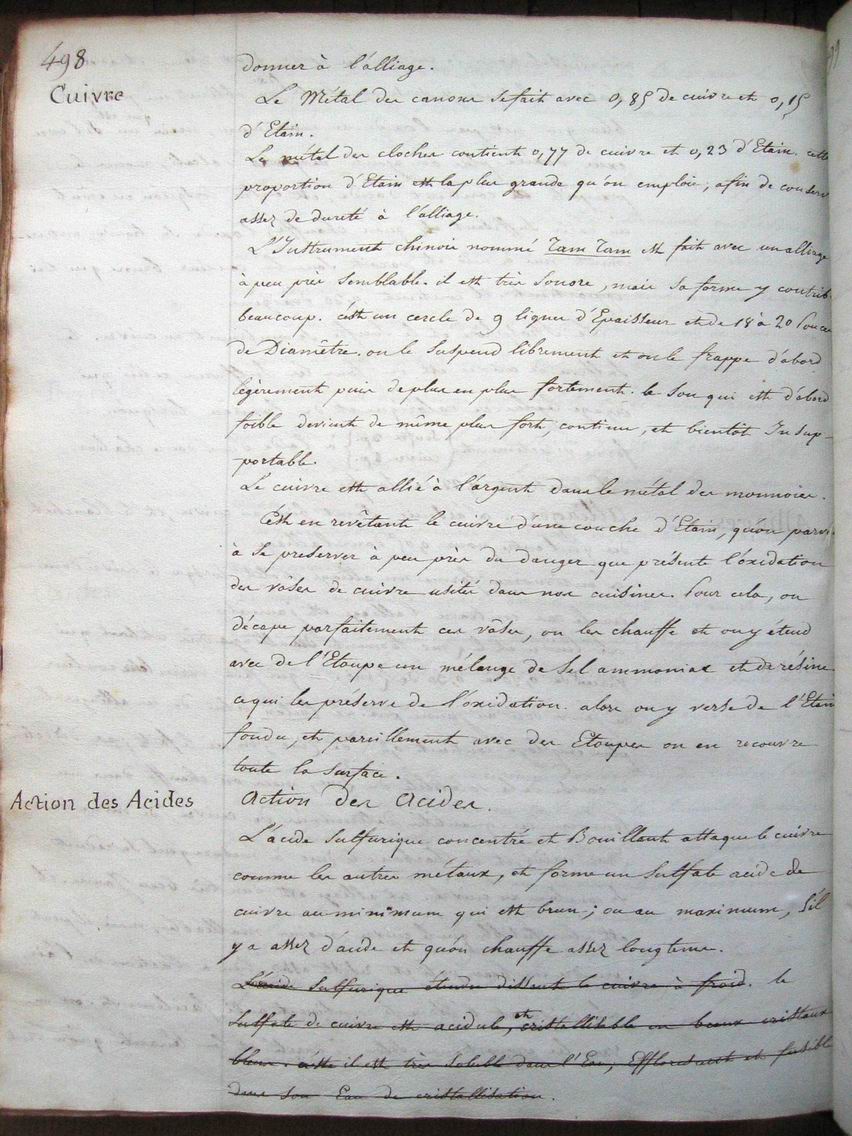 498
Cuivre
donner à l'alliage.
Le Métal des canons se fait avec 0,85 de cuivre et 0,15
d'Etain.
Le métal des cloches contient 0,77 de cuivre et 0,23 d'Etain. cette
proportion d'Etain est la plus grande qu'on emploie, afin de conserv
assez de dureté à l'alliage.
L'Instrument chinois nommé Tam Tam est fait avec un alliage
à peu près semblable. il est très sonore, mais sa forme y contrib
beaucoup. c'est un cercle de 9 lignes d'Epaisseur et de 18 à 20 Pouces
de Diamêtre. on le suspend librement et on le frappe d'abord
légèrement puis de plus en plus fortement. le son qui est d'abord
foible devient de même plus fort, continue, et bientôt Insup-
portable.
Le cuivre est allié à l'argent dans le métal des monnoies.
C'est en revêtant le cuivre d'une couche d'Etain, qu'on parvi
à se preserver à peu près du danger que présente l'oxidation
des vâses de cuivre usités dans nos cuisines. Pour cela, on
décape parfaitement ces vâses, on les chauffe et on y étend
avec de l'Etoupe un mélange de Sel ammoniac et de résine
ce qui les préserve de l'oxidation. alors on y verse de l'Etain
fondu, et pareillement avec des Etoupes on en recouvre
toute la surface.
Action des Acides
Action des Acides.
L'acide Sulfurique concentré et Bouillant attaque le cuivre
comme les autres métaux, et forme un Sulfate acide de
cuivre au minimum qui est brun; ou au maximum, S'il
y a assez d'acide et qu'on chauffe assez longtems.
L'acide Sulfurique étendu dissout le cuivre à froid. le
Sulfate de cuivre est acidule, et cristallisable en beaux cristaux
bleus. il est très soluble dans l'Eau, Efflorescent et fusible
dans son Eau de cristallisation.